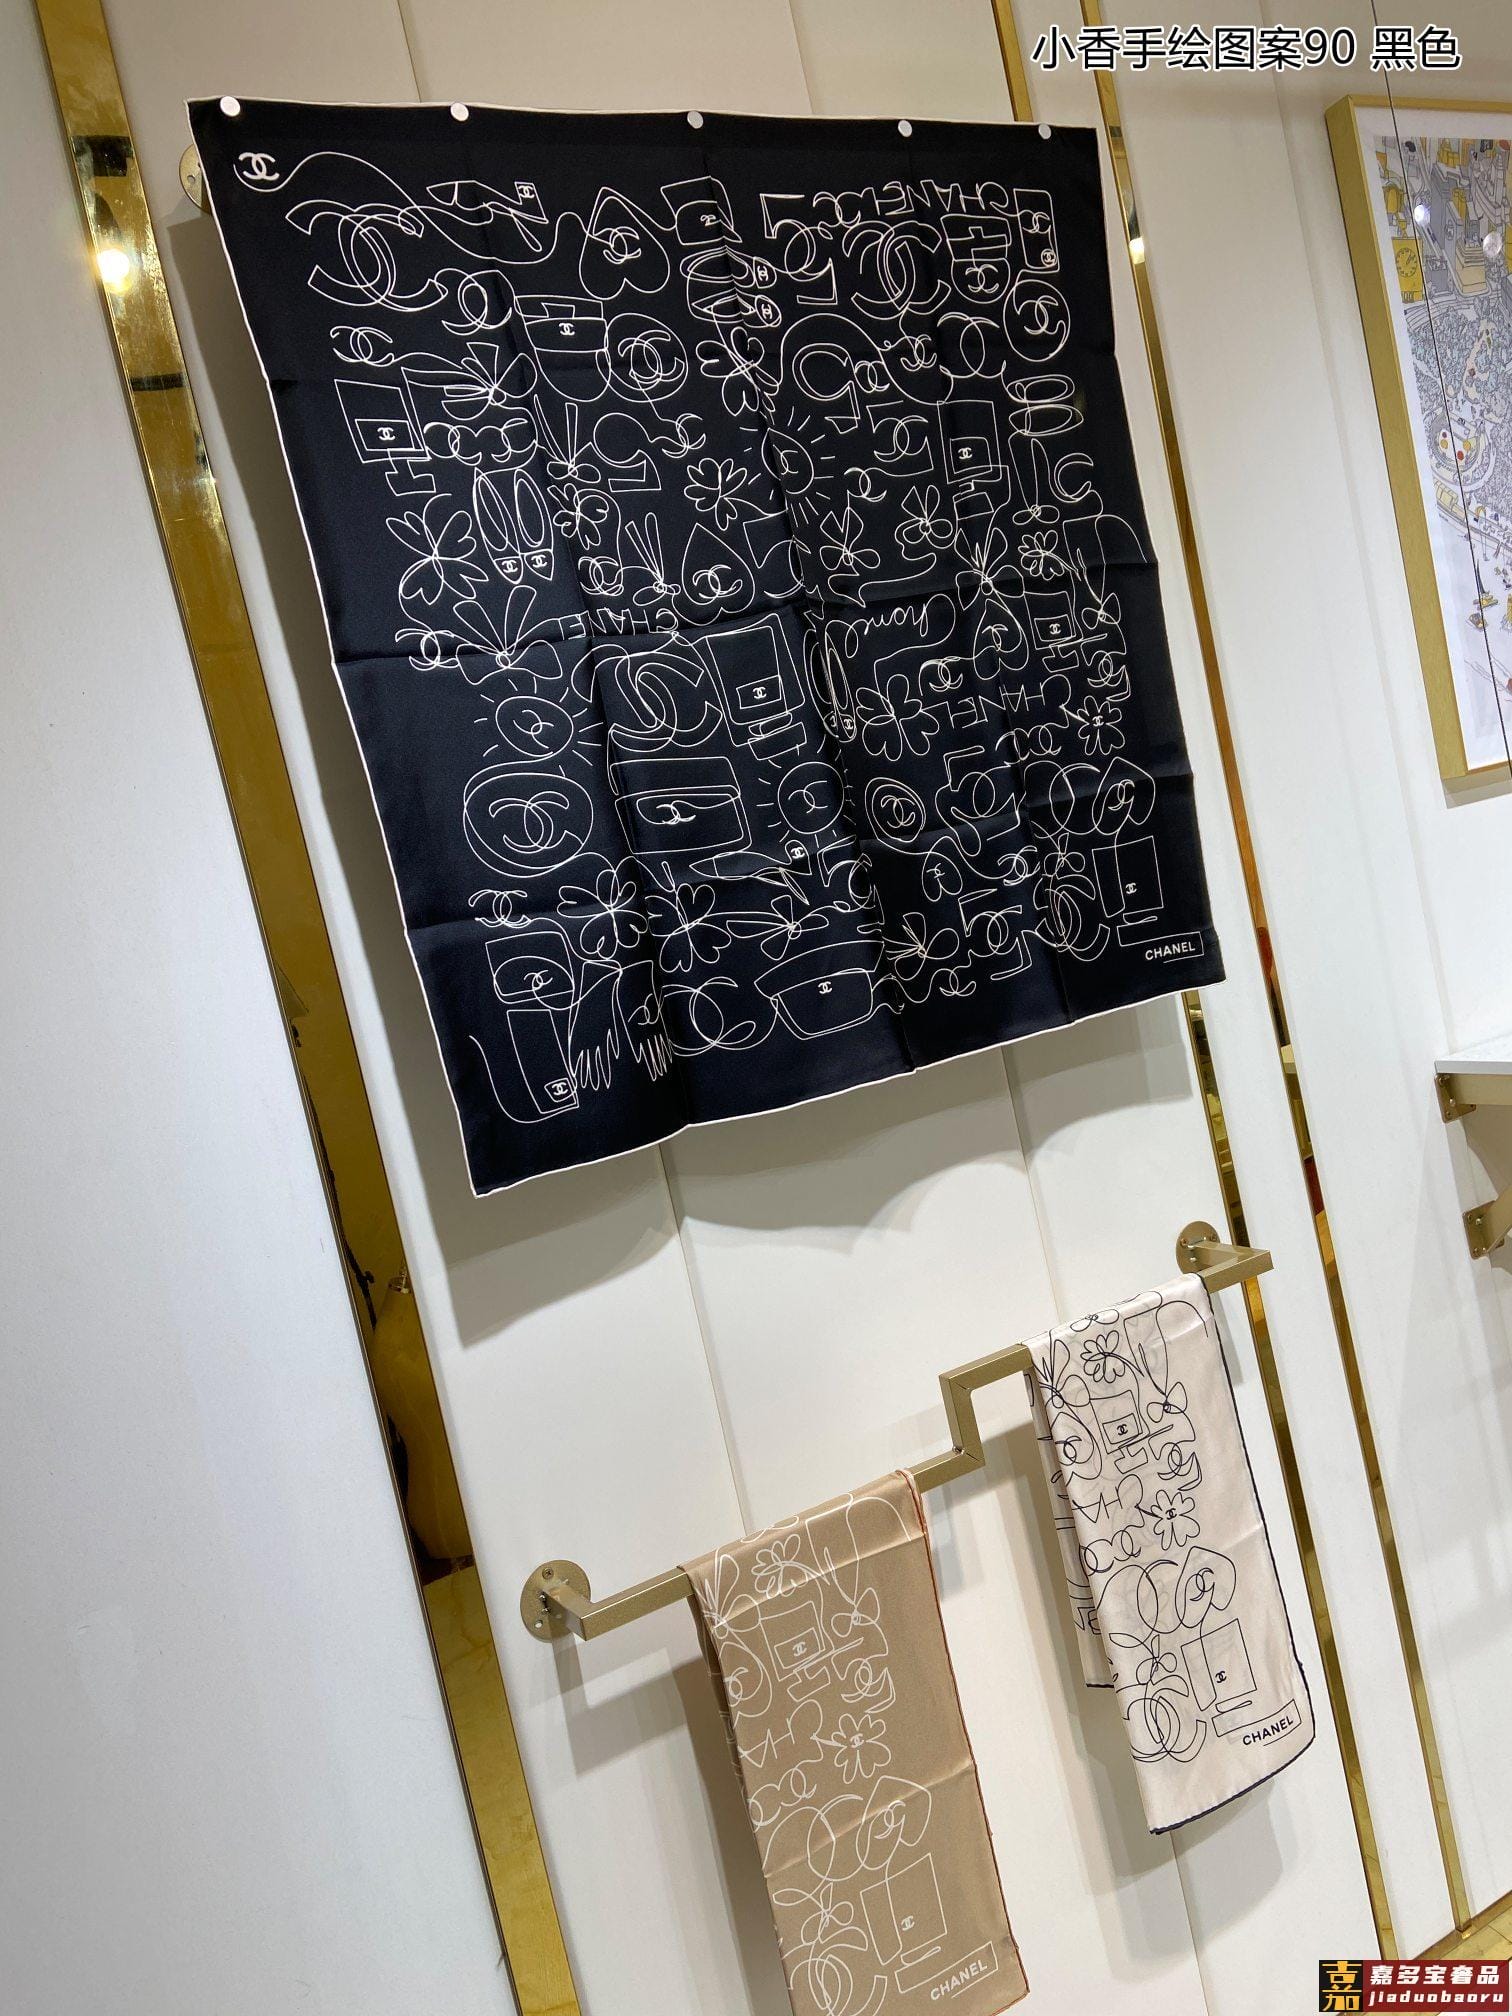 小香手绘图案90 黑色
CHANEL
CHANEL
CHANEL
CHANEL
chanel
CHANEL
CHANEL
CHANEL
嘉 嘉多宝奢品
jiaduobaoru